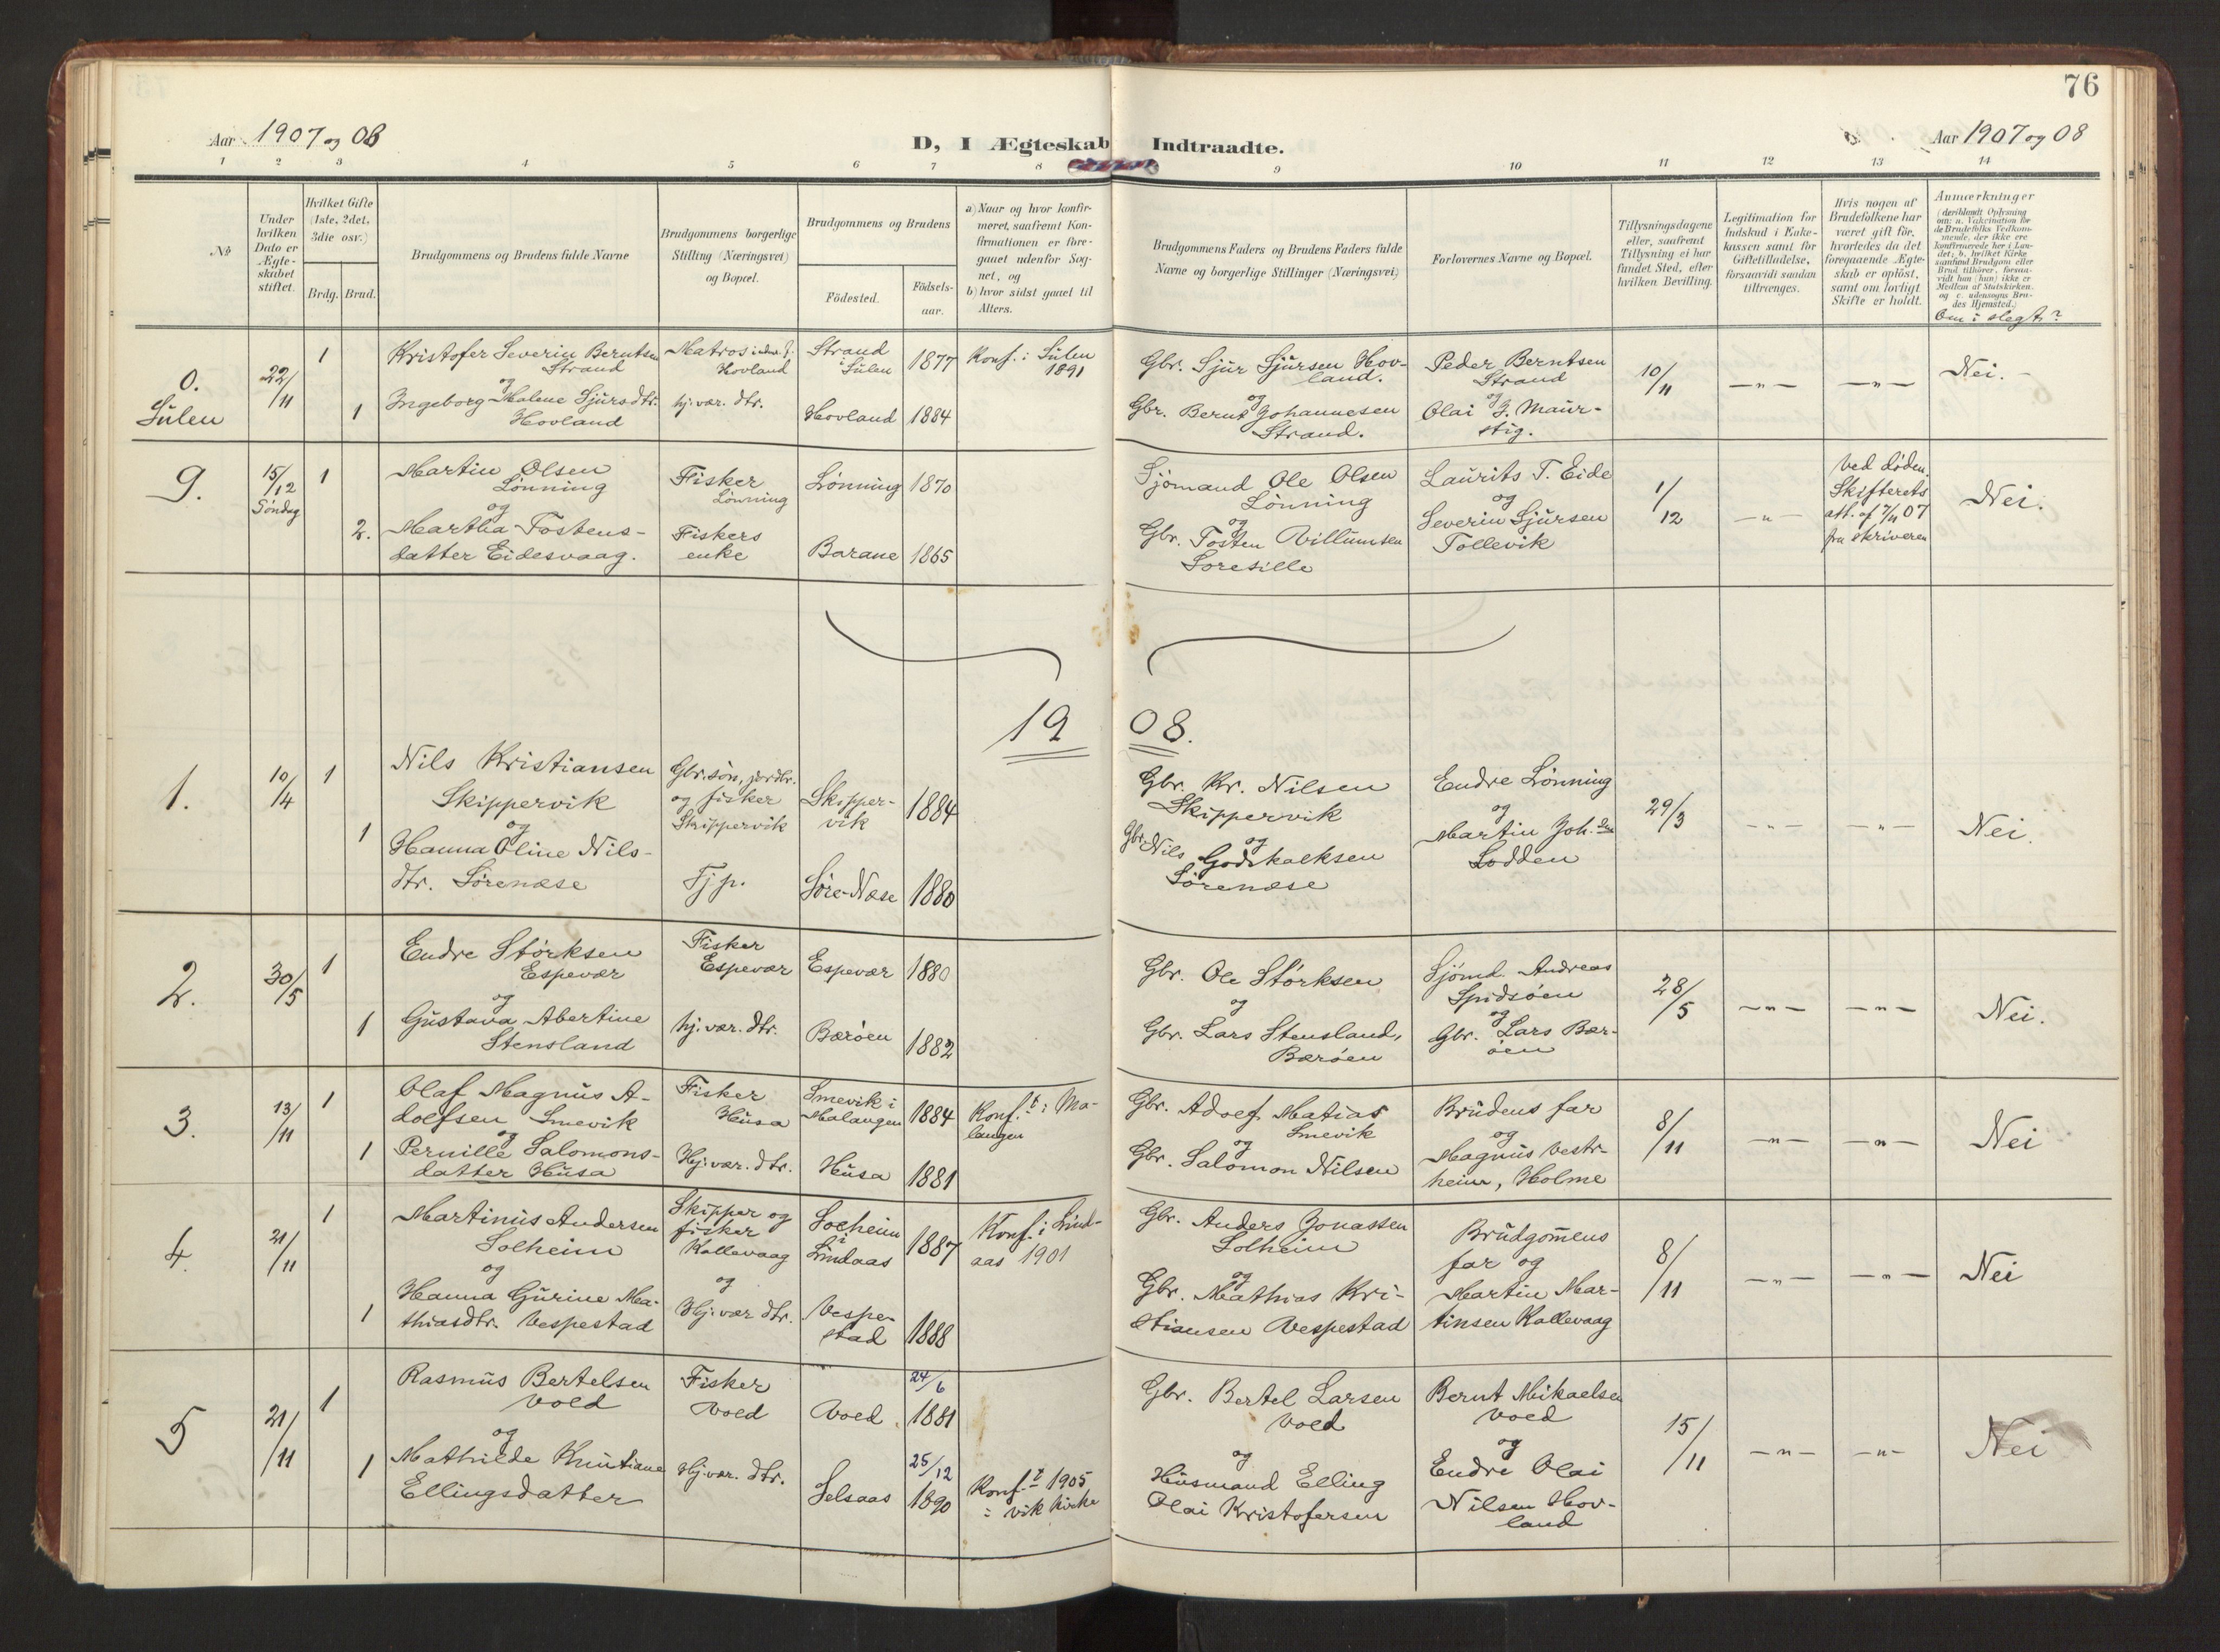 76
Aar 1907 og 08
D, I Ægteskab Indtraadte.
Aar 1907 og 08
1 2 3 4 5 6 7 8 9 10 11 12 13 14
No
Under
hvilken
Dato er
Ægte-
skabet
stiftet.
Hvilket Gifte
(1ste, 2det,
3die osv.)
Brdg. Brud.
Brudgommens og Brudens fulde Navne
Brudgommens borgerlige
Stilling (Næringsvei)
og Bopæl.
Brudgommens og Brudens
Fødested.
Fødsels-
aar.
a) Naar og hvor konfir-
meret, saafremt Kon-
firmationen er fore-
gaaet udenfor Sog-
net, og
b) hvor sidst gaaet til
Alters.
Brudgommens Faders og Brudens Faders fulde
Navne og borgerlige Stillinger (Næringsvei)
Forlovernes Navne og Bopæl.
Tillysningsdagene
eller, saafremt
Tillysning ei har
fundet Sted, efter
hvilken Bevilling.
Legitimation for
Indskud i Enke-
kassen samt for
Giftetilladelse,
forsaavidt saadan
tiltrænges.
Hvis nogen af
Brudefolkene har
været gift før,
hvorledes da det
foregaaende Ægte-
skab er opløst,
samt om lovligt
Skifte er holdt.
Anmærkninger
(deriblandt Oplysning
om: a. Vakcination for
de Brudefolks Vedkom-
mende, der ikke ere
konfirmerede her i Lan-
det; b. hvilket Kirke
samfund Brudgom eller
Brud tilhører, forsaa-
vidt han (hun) ikke er
Medlem af Statskirken.
og c. udensogns Bru-
des Hjemsted.)
Om i slegt?
0.
Sulen
22/11
1
Kristofer Severin Berntsen
Strand
og
1
Ingeborg Malene Sjursdtr.
Hovland
Matros
Hovland
hj. vær. dtr.
Strand
i Sulen
1877
Hovland 1884
Konf. i Sulen
1891
Gbr. Sjur Sjursen Hov-
land.
og
Gbr. Bernt Johannesen
Strand.
Peder Berntsen
Strand
og
Olai J. Maur-
stig.
10/11
— " —
— " —
Nei.
9.
15/12
Søndag
1
Martin Olsen
Lønning
og
2.
Martha Tostens-
datter Eidesvaag.
Fisker
Lønning
Fiskers
enke
Lønning 1870
Barane 1865
Sjømand Ole Olsen
Lønning
og
Gbr. Tosten Villumsen
Laurits T. Eide
og
Severin Sjursen
Tollevik
1/12
— " —
Ved døden.
Skifterets
att. af 7/11 07
fra skriveren
Nei.
1908.
1.
10/4
1
Nils Kristiansen
Skippervik
og
1
Hanna Oline Nils-
dtr. Sørenæse
Gbr. søn, jordbr.
og fisker
Skippervik
Tjp.
Skipper-
vik
1884
Søre-Næse 1880
Gbr. Kr. Nilsen
Skippervik
og
Gbr. Nils Godskalksen
Sørenæse
Endre Lønning
og
Martin Joh.sen
Lodden
29/3
— " —
— " —
Nei.
2.
30/5
1
Endre Størksen
Espevær
og
1
Gustava Abertine
Stensland
Fisker
Espevær
hj. vær. dtr.
Espevær 1880
Bærøen 1882
Gbr. Ole Størksen
og
Gbr. Lars Stensland,
Bærøen
Sjømd. Andreas
Spidsøen
og
Gbr. Lars Bær-
øen
28/5
— " —
— " —
Nei.
3.
13/11
1
Olaf Magnus A-
dolfsen Smevik
og
1
Pernille Salomons-
datter Husa
Fisker
Husa
Hj. vær. dtr.
Smevik i
Malangen
1884
Husa 1881
Konf.t i Ma-
langen
Gbr. Adolf Matias
Smevik
og
Gbr. Salomon Nilsen
Brudens far
og
Magnus Vestr-
heim, Holme
8/11
— " —
— " —
Nei
4.
21/11
1
Martinus Andersen
Solheim
og
1
Hanna Gurine Ma-
thiasdtr. Vespestad
Skipper og
fisker
Kallevaag
og
Hj. vær dtr.
Solheim
i
Lindaas
1887
Vespe-
stad
1888
Konf. i Lind-
aas 1901
Gbr. Anders Jonassen
Solheim
og
Gbr. Mathias Kri-
stiansen Vespestad
Brudgomens
far og
Martin Mar-
tinsen Kallevaag
8/11
— " —
— " —
Nei
5
21/11
1
Rasmus Bertelsen
Vold
og
1
Mathilde Knutiane
Ellingsdatter
Fisker
Vold
Hj. vær. dtr.
Vold
24/6
1881
Selsaas
25/12
1890
Konf.t 1905
i Vik kirke
Gbr. Bertel Larsen
Vold
og
Husmand Elling
Olai Kristofersen
Bernt Mikaelsen
Vold
og
Endre Olai
Nilsen Hov-
land
15/11
— " —
— " —
Nei